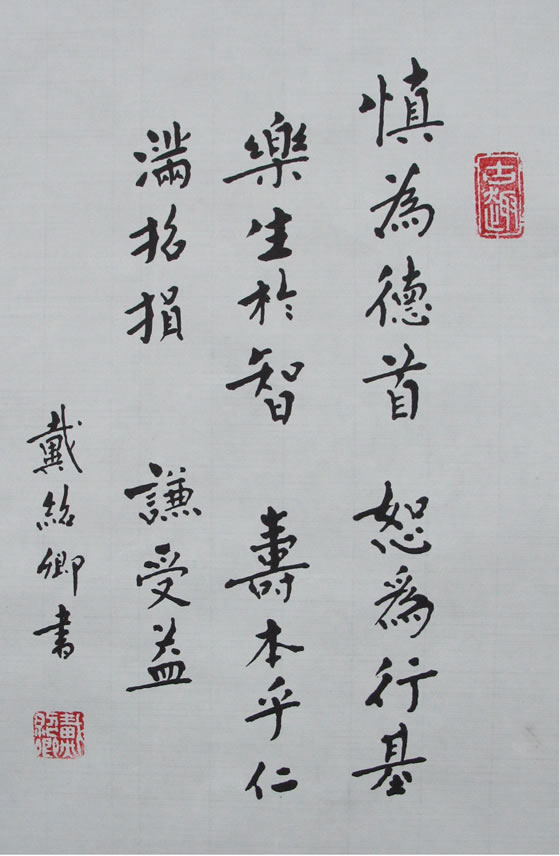 古趣
慎為德首 恕為行基
樂生於智 壽本乎仁
滿招損 謙受益
戴紹卿書
戴紹卿